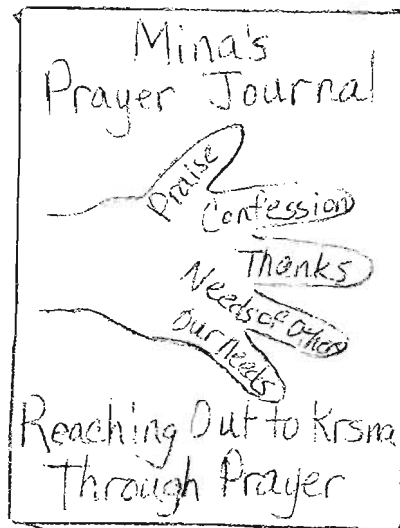 Mina's
Prayer Journal
Praise
Confession
Thanks
Needs of Others
Our Needs
Reaching Out to Krsna
Through Prayer